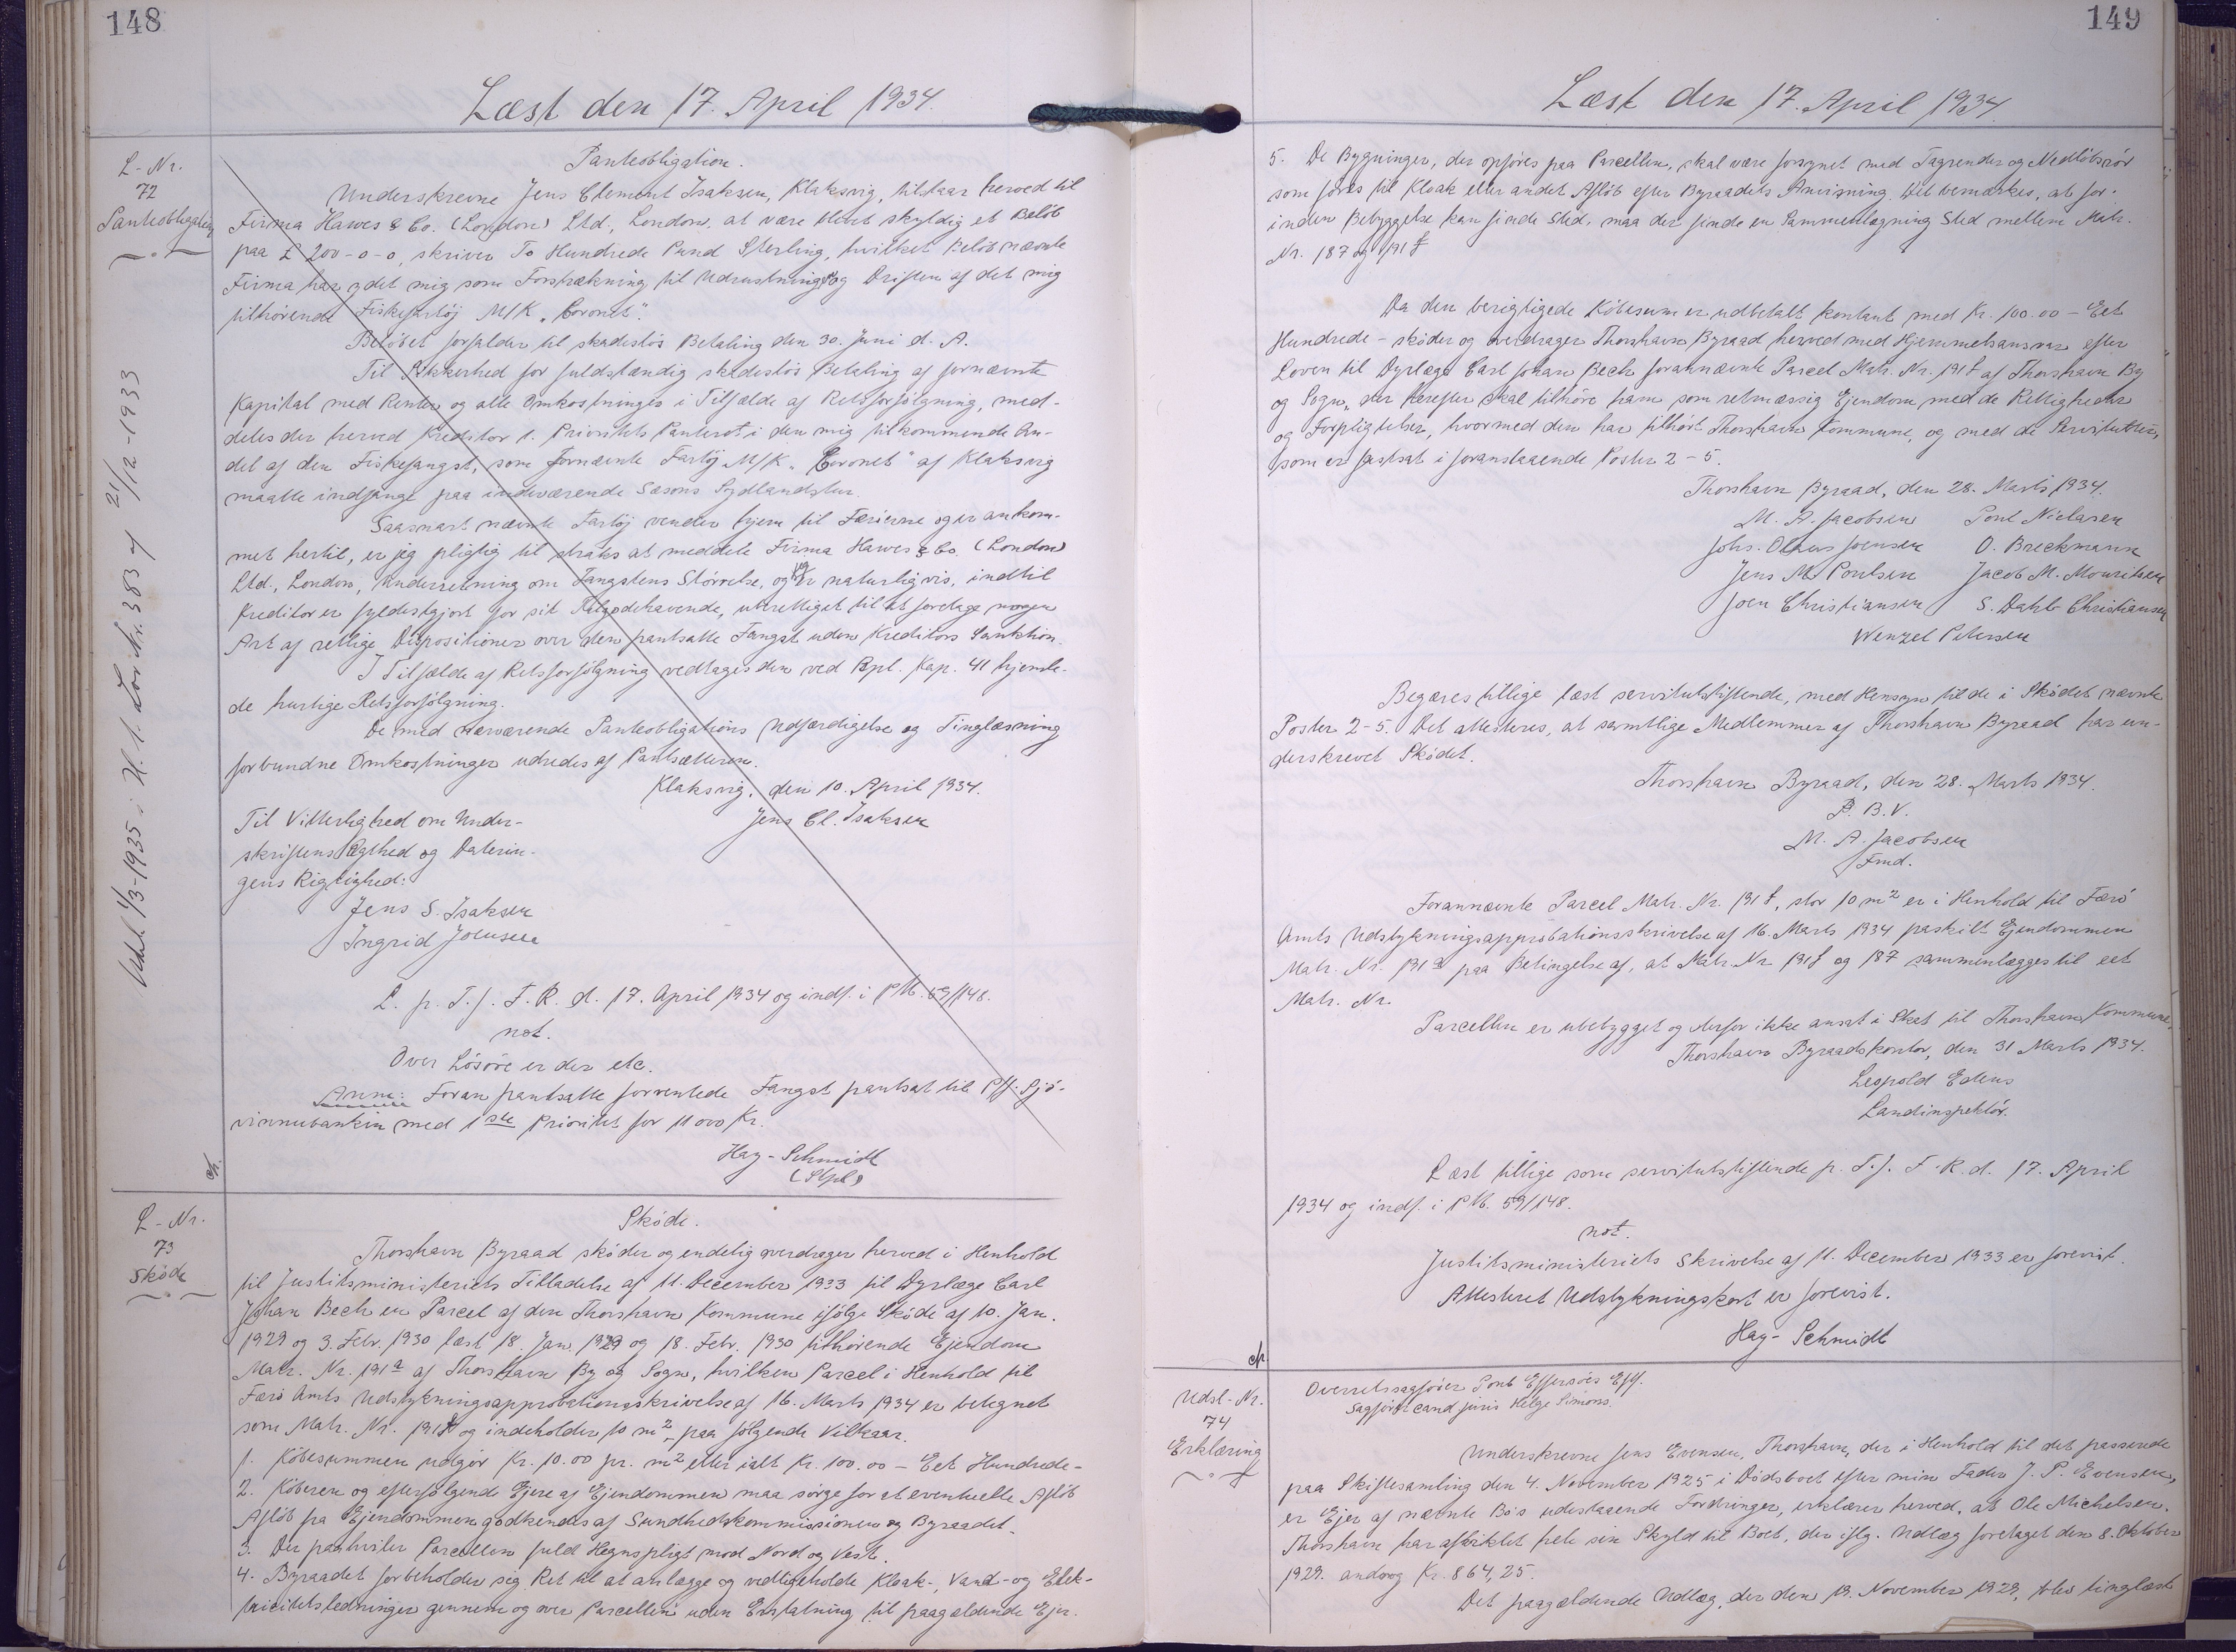 148
Læst den 17. April 1934.
L-Nr.
72
Panteobligation
Panteobligation.
Underskrevne Jens Clement Isaksen, Klaksvig, tilstaar herved til
Firma Hawes & Co. (London) Ltd., London, at være blevet skyldig et Beløb
paa £ 200-0-0, skriver To Hundrede Pund Sterling, hvilket Beløb nævnte
Firma har ydet mig som Forstrækning til Udrustning og Driften af det mig
tilhørende Fiskefartöj M/K „Coronet".
Beløbet forfalder til skadeslös Betaling den 30. Juni d. A.
Til Sikkerhed for fuldstændig skadeslös Betaling af fornævnte
Kapital med Renter og alle Omkostninger i Tilfælde af Retsforfölgning, med-
deles der herved Kreditor 1. Prioritets Panteret i den mig tilkommende An-
del af den Fiskefangst, som fornævnte Fartöj M/K „Coronet" af Klaksvig
maatte indfange paa indeværende Sæsons Sydlandstur.
Saasnart nævnte Fartöj vender hjem til Færöerne og er ankom-
met hertil, er jeg pligtig til straks at meddele Firma Hawes & Co. (London)
Ltd., London, Underretning om Fangstens Störrelse, og jeg er naturligvis, indtil
Kreditor er fyldestgjort for sit Tilgodehavende, uberettiget til at foretage nogen
Art af retlige Dispositioner over den pantsatte Fangst uden Kreditors Sanktion.
I Tilfælde af Retsforfölgning vedtages den ved Rpl. Kap. 41 hjemle-
de hurtige Retsforfölgning.
De med nærværende Panteobligations Udfærdigelse og Tinglæsning
forbundne Omkostninger udredes af Pantsætteren.
Klaksvig, den 10. April 1934.
Til Vitterlighed om Under-
Jens Cl. Isaksen
skriftens Ægthed og Daterin-
gens Rigtighed:
Jens S. Isaksen
Ingrid Joensen
L. p. T. f. F. R. d. 17. April 1934 og indf. i PM. 59/148.
not.
Over Lösöre er der etc.
Anm: Foran pantsatte forventede Fangst pantsat til P/f. Sjó-
vinnubankin med 1ste Prioritet for 11000 Kr.
Hay-Schmidt
(Stpl)
Udsl. 1/3-1935 i H. t. Lov Nr. 383 af 21/12-1933
L-Nr.
73
Sköde
Sköde.
Thorshavn Byraad sköder og endelig overdrager herved i Henhold
til Justitsministeriets Tilladelse af 11. December 1933 til Dyrlæge Carl
Johan Bech en Parcel af den Thorshavn Kommune ifölge Sköde af 10. Jan.
1929 og 3. Febr. 1930 læst 18. Jan. 1929 og 18. Febr. 1930 tilhörende Ejendom
Matr. Nr. 191a af Thorshavn By og Sogn, hvilken Parcel i Henhold til
Færö Amts Udstykningsapprobationsskrivelse af 16. Marts 1934 er betegnet
som Matr. Nr. 191f og indeholder 10 m2, paa fölgende Vilkaar.
1. Köbesummen udgör Kr. 10.00 pr. m2 eller ialt Kr. 100.00 - Eet Hundrede-
2. Köberen og efterfölgende Ejere af Ejendommen maa sörge for at eventuelle Aflöb
Aflöb fra Ejendommen godkendes af Sundhedskommissionen og Byraadet.
3. Der paahviler Parcellen fuld Hegnspligt mod Nord og Vest.
4. Byraadet forbeholder sig Ret til at anlægge og vedligeholde Kloak-, Vand- og Elek-
tricitetsledninger gennem og over Parcellen uden Erstatning til paagældende Ejer.
149
Læst den 17. April 1934.
5. De Bygninger, der opföres paa Parcellen, skal være forsynet med Tagrender og Nedlöbsrör
som föres til Kloak eller andet Aflöb efter Byraadets Anvisning. Det bemærkes, at for-
inden Bebyggelse kan finde Sted, maa der finde en Sammenlægning Sted mellem Matr.
Nr. 187 og 191f
Da den berigtigede Köbesum er udbetalt kontant med Kr. 100.00 - Eet
Hundrede - sköder og overdrager Thorshavn Byraad herved med Hjemmelsansvar efter
Loven til Dyrlæge Carl Johan Bech forannævnte Parcel Matr. Nr. 191f af Thorshavn By
og Sogn, der herefter skal tilhöre ham som retmæssig Ejendom med de Rettigheder
og Forpligtelser, hvormed den har tilhört Thorshavn Kommune, og med de Servitutter,
som er fastsat i foranstaaende Poster 2-5.
Thorshavn Byraad, den 28. Marts 1934.
M. A. Jacobsen Poul Niclasen
Johs. Olaus Joensen O. Breckmann
Jens M. Poulsen Jacob M. Mouritsen
Joen Christiansen S. Dahl Christiansen
Wenzel Petersen
Begæres tillige læst servitutstiftende, med Hensyn til de i Sködet nævnte
Poster 2-5. Det attesteres, at samtlige Medlemmer af Thorshavn Byraad har un-
derskrevet Sködet.
Thorshavn Byraad, den 28. Marts 1934.
P. B. V.
M. A. Jacobsen
Fmd.
Forannævnte Parcel Matr. Nr. 191f, stor 10 m2 er i Henhold til Færö
Amts Udstykningsapprobationsskrivelse af 16. Marts 1934 fraskilt Ejendommen
Matr. Nr. 191a paa Betingelse af, at Matr. Nr. 191f og 187 sammenlægges til eet
Matr. Nr.
Parcellen er ubebygget og derfor ikke ansat i Skat til Thorshavn Kommune.
Thorshavn Byraadskontor, den 31 Marts 1934.
Leopold Edens
Landinspektör.
Læst tillige som servitutstiftende p. T. f. F. R. d. 17. April
1934 og indf. i PM. 59/148.
not.
Justitsministeriets Skrivelse af 11. December 1933 er forevist.
Attesteret Udstykningskort er forevist.
Hay-Schmidt
Udsl-Nr.
74
Erklæring
Overretssagförer Poul Effersöes Eftf.
Sagförer cand juris Helge Simons.
Underskrevne Jens Evensen, Thorshavn, der i Henhold til det passerede
paa Skiftesamling den 4. November 1925 i Dödsboet efter min Fader J. P. Evensen,
er Ejer af nævnte Bo's udestaaende Fordringer, erklærer herved, at Ole Michelsen,
Thorshavn har afviklet hele sin Skyld til Boet, der iflg. Udlæg foretaget den 8. Oktober
1929. androg Kr. 864,25.
Det paagældende Udlæg, der den 19. November 1929, blev tinglæst